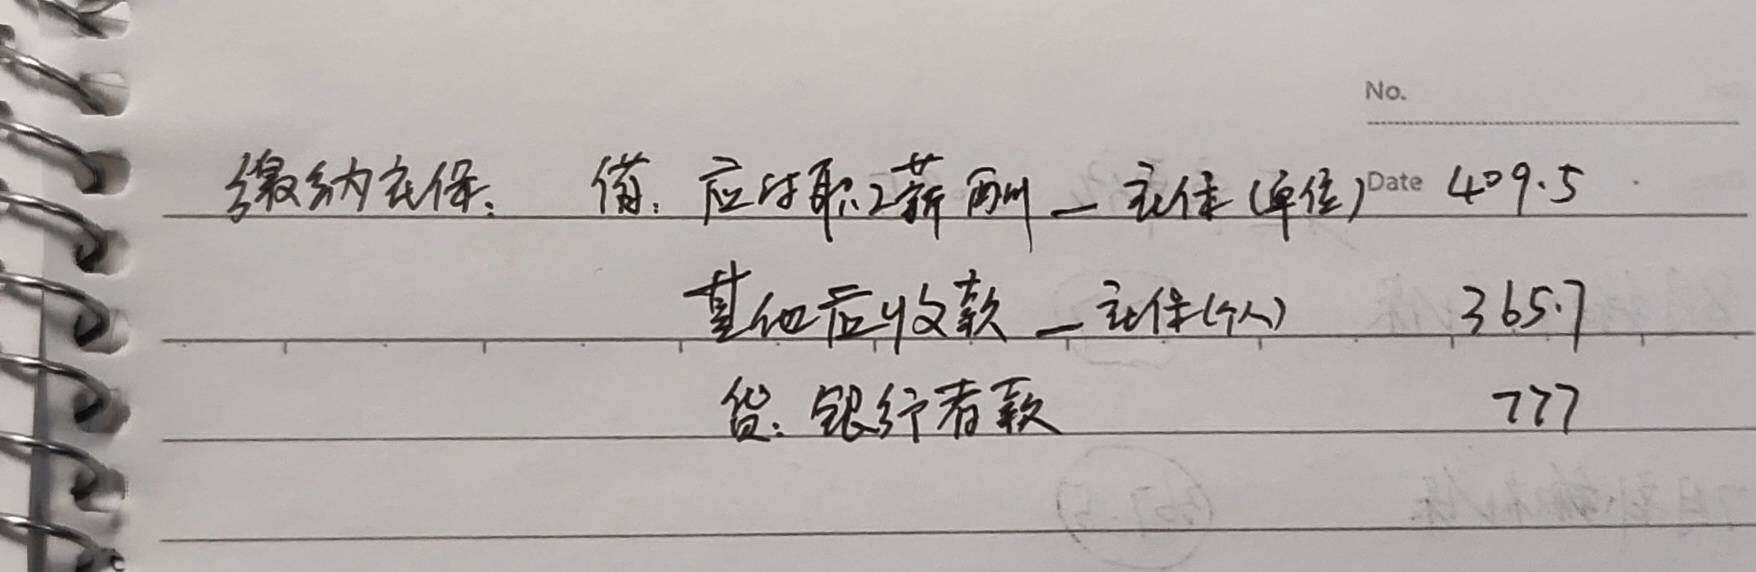 No.
缴纳社保: 借: 应付职工薪酬 — 社保(单位) Date 409.5
其他应收款 — 社保(个人) 365.7
贷: 银行存款 777